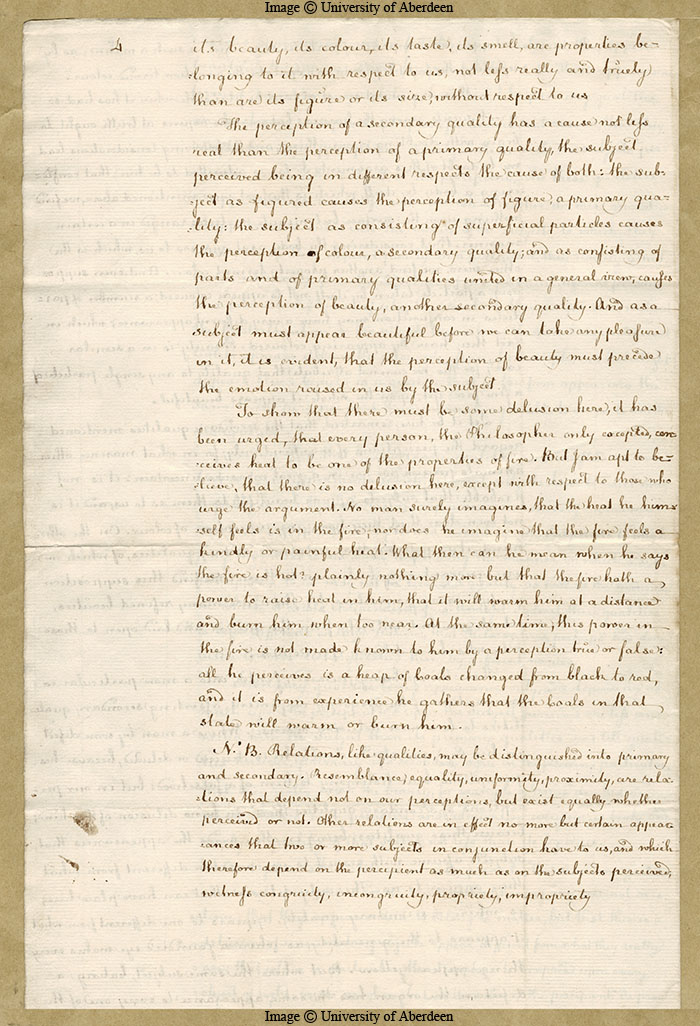 Image © University of Aberdeen
4
it's beauty, its colour, its taste, its smell, are properties be-
-longing to it with respect to us, not less really and truely
than are its figure or its size, without respect to us
The perception of a secondary quality has a cause not less
real than the perception of a primary quality, the subject
perceived being in different respects the cause of both: the sub-
-ject as figured causes the perception of figure, a primary qua-
-lity: the subject as consisting of superficial particles causes
the perception of colour, a secondary quality; and as consisting of
parts and of primary qualities united in a general view, causes
the perception of beauty, another secondary quality. And as a
subject must appear beautiful before we can take any pleasure
in it, it is evident, that the perception of beauty must precede
the emotion roused in us by the subject
To show that there must be some delusion here, it has
been urged, that every person, the Philosopher only excepted, con-
-ceives heat to be one of the properties of fire. But I am apt to be-
-lieve, that there is no delusion here, except with respect to those who
urge the argument. No man surely imagines, that the heat he him
self feels is in the fire; nor does he imagine that the fire feels a
kindly or painful heat. What then can he mean when he says
the fire is hot? plainly nothing more but that the fire hath a
power to raise heat in him, that it will warm him at a distance
and burn him when too near. At the same time, this power in
the fire is not made known to him by a perception true or false:
all he perceives is a heap of Coals changed from black to red,
and it is from experience he gathers that the Coals in that
state will warm or burn him.
N. B. Relations, like qualities, may be distinguished into primary
and secondary. Resemblance, equality, uniformity, proximity, are rela-
-tions that depend not on our perceptions, but exist equally whether
perceived or not. Other relations are in effect no more but certain appea-
-rances that two or more subjects in conjunction have to us, and which
therefore depend on the percipient as much as on the subjects perceived,
witness congruity, incongruity, propriety, impropriety
Image © University of Aberdeen